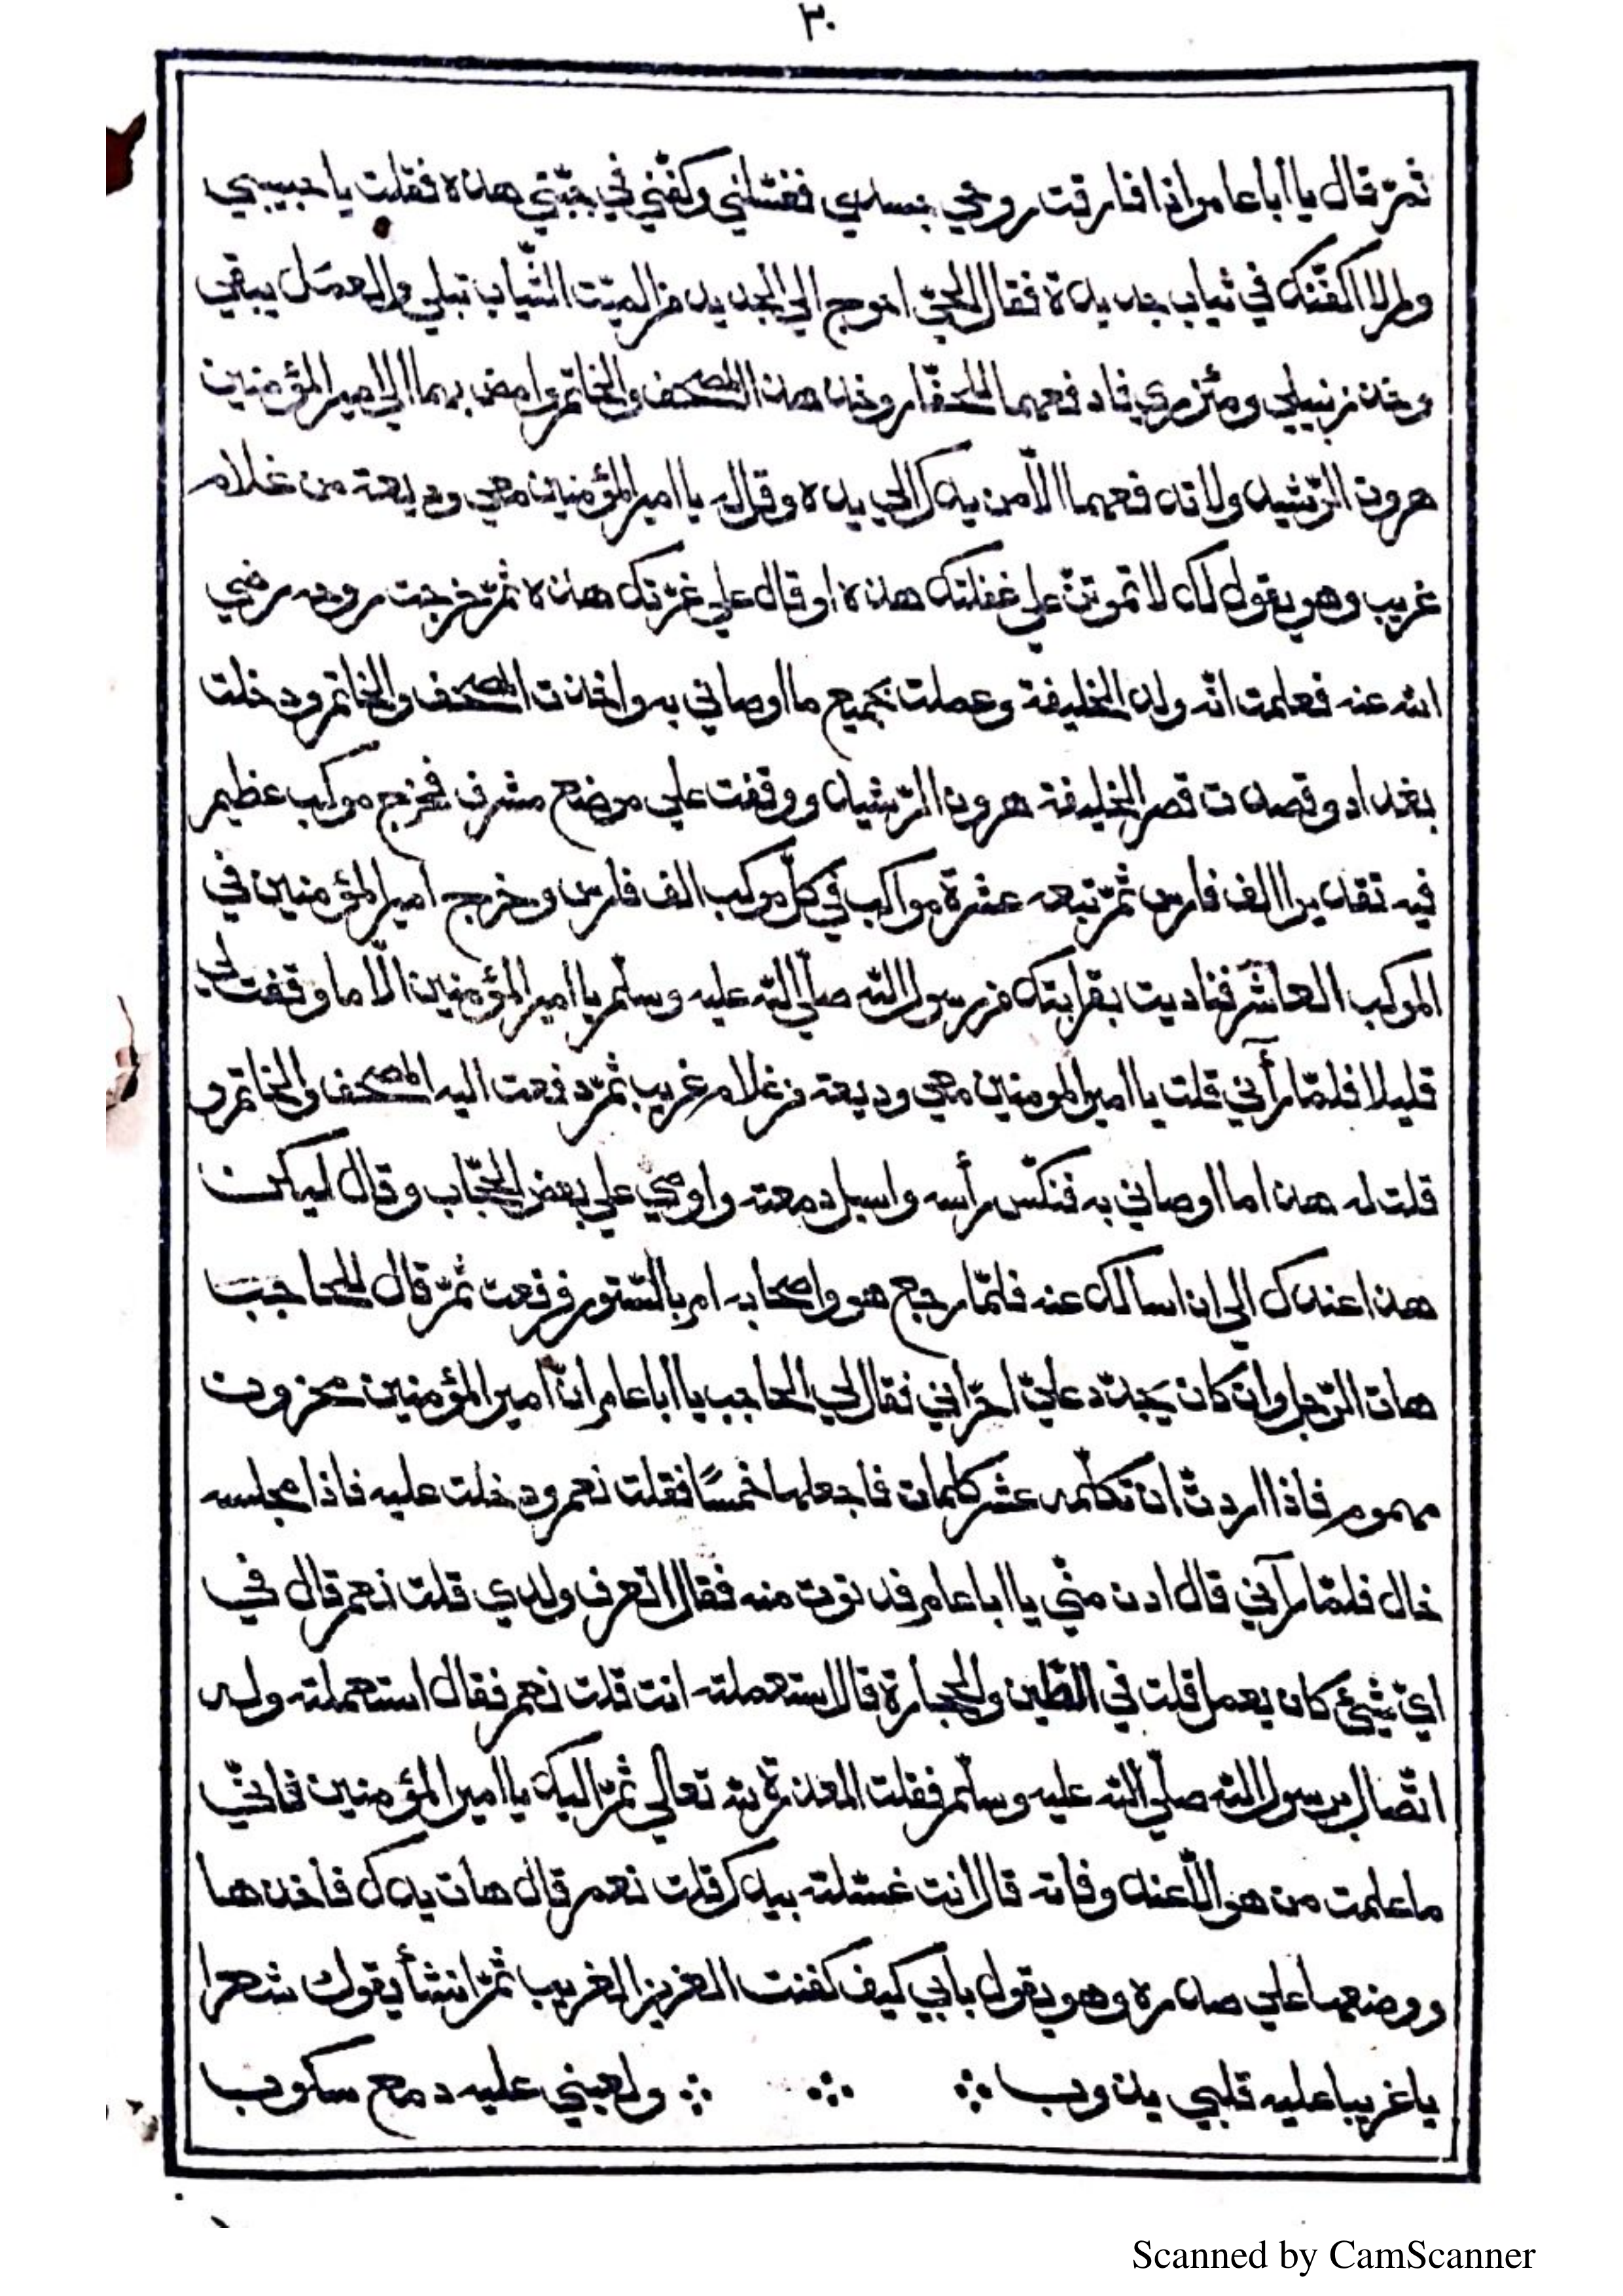 ٣٠
ثمّ قال يا ابا عامر اذا فارقت روحي جسدي فغسّلني وكفّني في جبّتي هذه فقلت يا حبيبي
ولم لا اكفّنك في ثياب جديدة فقال الحيّ احوج الي الجديد من الميّت الثّياب تبلي والعمل يبقي
وخذ زنبيلي ومئزري فادفعهما للحفّار وخذ هذا المصحف والخاتم وامض بهما الي امير المؤمنين
هرون الرّشيد ولا تدفعهما الّا من يدك الي يده وقل له يا امير المؤمنين معي وديعة من غلام
غريب وهو يقول لك لا تموتنّ علي غفلتك هذه او قال علي غرّتك هذه ثمّ خرجت روحه رضي
الله عنه فعلمت انّه ولد الخليفة وعملت بجميع ما اوصاني به واخذت المصحف والخاتم ودخلت
بغداد وقصدت قصر الخليفة هرون الرّشيد ووقفت علي موضع مشرف فخرج موكب عظيم
فيه تقدير الف فارس ثمّ تبعه عشرة مواكب في كلّ موكب الف فارس وخرج امير المؤمنين في
الموكب العاشر فناديت بقرابتك من رسول الله صلّي الله عليه وسلّم يا امير المؤمنين الّا ما وقفت لي
قليلا فلمّا رآني قلت يا امير المومنين معي وديعة من غلام غريب ثمّ دفعت اليه المصحف والخاتم و
قلت له هذا ما اوصاني به فنكّس رأسه واسبل دمعته واوصي علي بعض الحجّاب وقال ليكن
هذا عندك الي ان اسالك عنه فلمّا رجع هو واصحابه امر بالسّتور فرفعت ثمّ قال للحاجب
هات الرّجل وان كان يجدّد عليّ احزاني فقال لي الحاجب يا ابا عامر انّ امير المؤمنين محزون
مهموم فاذا اردتّ ان تكلّمه عشر كلمات فاجعلها خمسًا فقلت نعم ودخلت عليه فاذا مجلسه
خال فلمّا رآني قال ادن منّي يا ابا عامر فدنوت منه فقال اتعرف ولدي قلت نعم قال في
ايّ شيئ كان يعمل قلت في الطّين والحجارة قال استعملته انت قلت نعم فقال استعملته وله
اتّصال برسول الله صلّي الله عليه وسلّم فقلت المعذرة لله تعالي ثمّ اليك يا امير المؤمنين فانّي
ما علمت من هو الّا عند وفاته قال انت غسّلته بيدك قلت نعم قال هات يدك فاخذها
ووضعها علي صدره وهو يقول بابي كيف كفنت العزيز الغريب ثمّ انشأ يقول شعرا
يا غريبا عليه قلبي يذوب ∴ ∴ ∴ ولعيني عليه دمع سكوب
Scanned by CamScanner